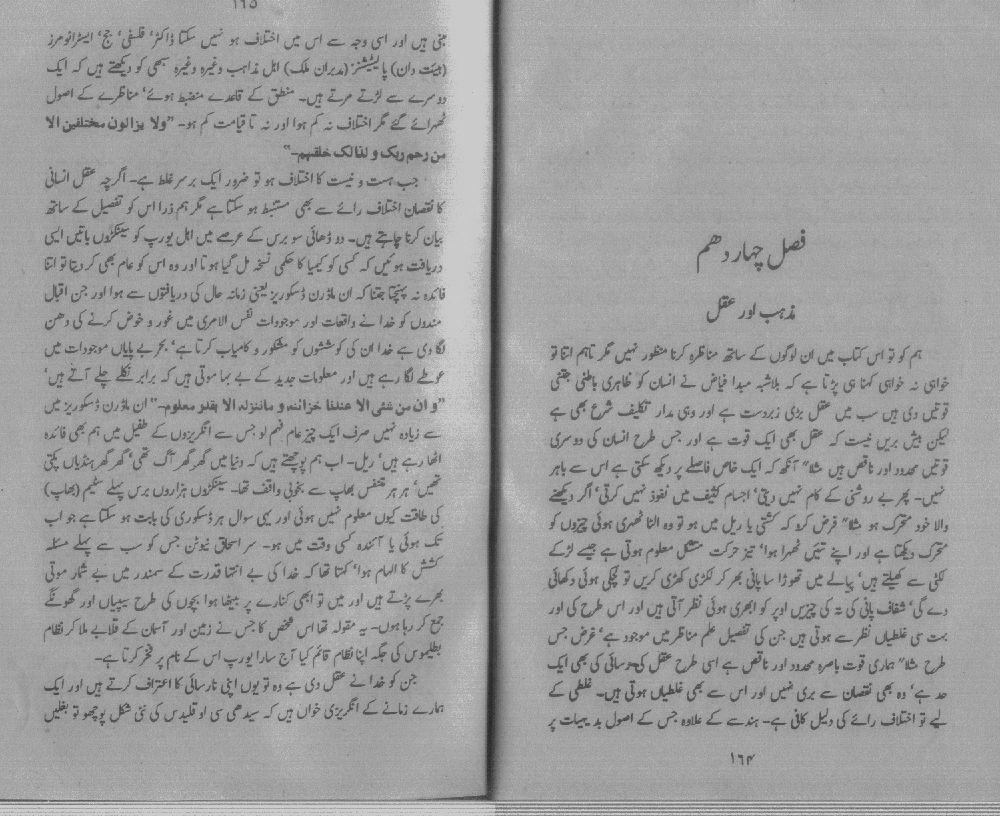 فصل چہار دھم
مذہب اور عقل
ہم کو تو اس کتاب میں ان لوگوں کے ساتھ مناظرہ کرنا منظور نہیں مگر تاہم اتنا تو
خواہی نہ خواہی کہنا ہی پڑتا ہے کہ بلاشبہ مبدا فیاض نے انسان کو ظاہری باطنی جتنی
قوتیں دی ہیں سب میں عقل بڑی زبردست ہے اور وہی مدار تکلیف شرع بھی ہے
لیکن بیش بریں نیست کہ عقل بھی ایک قوت ہے اور جس طرح انسان کی دوسری
قوتیں محدود اور ناقص ہیں مثلا" آنکھ کہ ایک خاص فاصلے پر دیکھ سکتی ہے اس سے باہر
نہیں۔ پھر بے روشنی کے کام نہیں دیتی' اجسام کثیف میں نفوذ نہیں کرتی' اگر دیکھنے
والا خود متحرک ہو مثلا" فرض کرو کہ کشتی یا ریل میں ہو تو وہ الٹا ٹھہری ہوئی چیزوں کو
متحرک دیکھتا ہے اور اپنے تئیں ٹھہرا ہوا' تیز حرکت متشکل معلوم ہوتی ہے جیسے لڑکے
لکٹی سے کھیلتے ہیں' پیالے میں تھوڑا سا پانی بھر کر لکڑی کھڑی کریں تو لچکی ہوئی دکھائی
دے گی' شفاف پانی کی تہ کی چیزیں اوپر کو ابھری ہوئی نظر آتی ہیں اور اس طرح کی اور
بہت سی غلطیاں نظر سے ہوتی ہیں جن کی تفصیل علم مناظر میں موجود ہے' غرض جس
طرح مثلا" ہماری قوت باصرہ محدود اور ناقص ہے اسی طرح عقل کی رسائی کی بھی ایک
حد ہے' وہ بھی نقصان سے بری نہیں اور اس سے بھی غلطیاں ہوتی ہیں۔ غلطی کے
لیے تو اختلاف رائے کی دلیل کافی ہے۔ ہندسے کے علاوہ جس کے اصول بدیہیات پر
۱۶۴
۱۶۵
مبنی ہیں اور اسی وجہ سے اس میں اختلاف ہو نہیں سکتا ڈاکٹر' فلسفی' جج' ایسٹرانومرز
(ہیئت دان) پالیٹیشنز (مدبران ملک) اہل مذاہب وغیرہ وغیرہ سبھی کو دیکھتے ہیں کہ ایک
دوسرے سے لڑتے مرتے ہیں۔ منطق کے قاعدے منضبط ہوئے' مناظرے کے اصول
ٹھہرائے گئے مگر اختلاف نہ کم ہوا اور نہ تا قیامت کم ہو۔ "ولا یزالون مختلفین الا
من رحم ربک و لذالک خلقہم۔"
جب ہست و نیست کا اختلاف ہو تو ضرور ایک برسر غلط ہے۔ اگرچہ عقل انسانی
کا نقصان اختلاف رائے سے بھی مستنبط ہو سکتا ہے مگر ہم ذرا اس کو تفصیل کے ساتھ
بیان کرنا چاہتے ہیں۔ دو ڈھائی سو برس کے عرصے میں اہل یورپ کو سینکڑوں باتیں ایسی
دریافت ہوئیں کہ کسی کو کیمیا کا حکمی نسخہ مل گیا ہوتا اور وہ اس کو عام بھی کر دیتا تو اتنا
فائدہ نہ پہنچتا جتنا کہ ان ماڈرن ڈسکوریز یعنی زمانہ حال کی دریافتوں سے ہوا اور جن اقبال
مندوں کو خدا نے واقعات اور موجودات نفس الامری میں غور و خوض کرنے کی دھن
لگا دی ہے خدا ان کی کوششوں کو مشکور و کامیاب کرتا ہے' بحر بے پایاں موجودات میں
غوطے لگا رہے ہیں اور معلومات جدید کے بے بہا موتی ہیں کہ برابر نکلے چلے آتے ہیں'
"و ان من شئی الا عندنا خزائنہ و ماننزلہ الا بقدر معلوم۔" ان ماڈرن ڈسکوریز میں
سے زیادہ نہیں صرف ایک چیز عام فہم لو جس سے انگریزوں کے طفیل میں ہم بھی فائدہ
اٹھا رہے ہیں' ریل۔ اب ہم پوچھتے ہیں کہ دنیا میں گھر گھر آگ تھی' گھر گھر ہنڈیاں پکتی
تھیں' ہر ہر متنفس بھاپ سے بخوبی واقف تھا۔ سینکڑوں ہزاروں برس پہلے سٹیم (بھاپ)
کی طاقت کیوں معلوم نہیں ہوئی اور یہی سوال ہر ڈسکوری کی بابت ہو سکتا ہے جو اب
تک ہوئی یا آئندہ کسی وقت میں ہو۔ سر اسحاق نیوٹن جس کو سب سے پہلے مسئلہ
کشش کا الہام ہوا' کہتا تھا کہ خدا کی بے انتہا قدرت کے سمندر میں بے شمار موتی
بھرے پڑتے ہیں اور میں تو ابھی کنارے پر بیٹھا ہوا بچوں کی طرح سیپیاں اور گھونگے
جمع کر رہا ہوں۔ یہ مقولہ تھا اس شخص کا جس نے زمین اور آسمان کے قلابے ملا کر نظام
بطلیموس کی جگہ اپنا نظام قائم کیا آج سارا یورپ اس کے نام پر فخر کرتا ہے۔
جن کو خدا نے عقل دی ہے وہ تو یوں اپنی نارسائی کا اعتراف کرتے ہیں اور ایک
ہمارے زمانے کے انگریزی خواں ہیں کہ سیدھی سی اوقلیدس کی نئی شکل پوچھو تو بغلیں